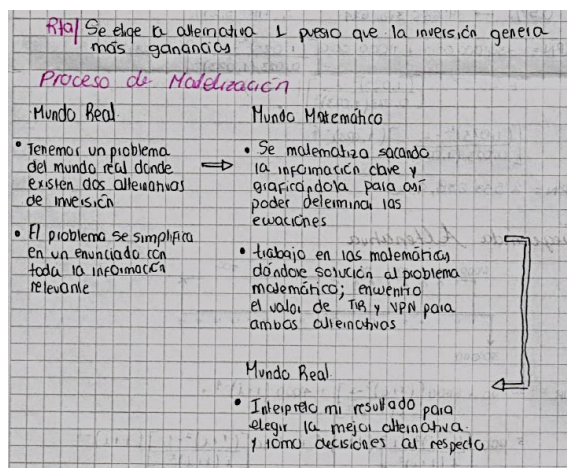 Rta/ Se elige la alternativa 1 puesto que la inversión genera
más ganancias
Proceso de Modelización
Mundo Real
• Tenemos un problema
del mundo real donde
existen dos alternativas
de inversión
• El problema se simplifica
en un enunciado con
toda la información
relevante
Mundo Matemático
• Se matematiza sacando
la información clave y
graficándola para así
poder determinar las
ecuaciones
• trabajo en las matemáticas
dándole solución al problema
matemático; encuentro
el valor de TIR y VPN para
ambas alternativas
Mundo Real
• Interpreto mi resultado para
elegir la mejor alternativa
y tomo decisiones al respecto